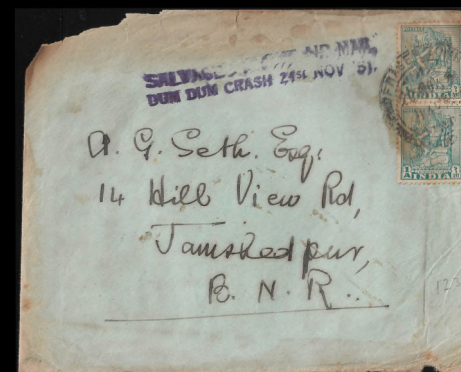 SALVAGED NIGHT AIR MAIL,
DUM DUM CRASH 21st NOV '51.
A. G. Seth. Esq:
14 Hill View Rd,
Jamshedpur,
B. N. R..
INDIA
1 A INDIA